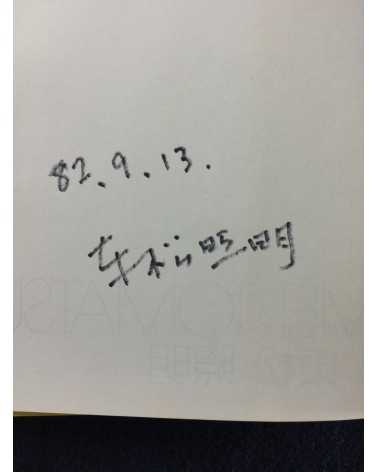 82.9.13.
東松照明